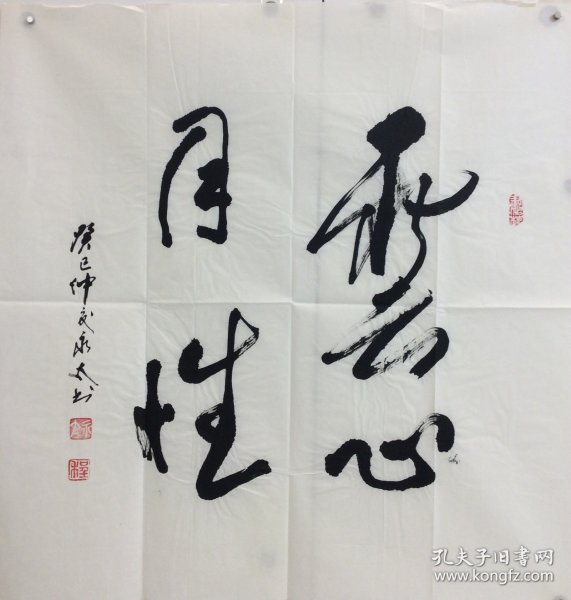 雲心
月性
癸巳仲冬永太书
孔夫子旧书网
www.kongfz.com